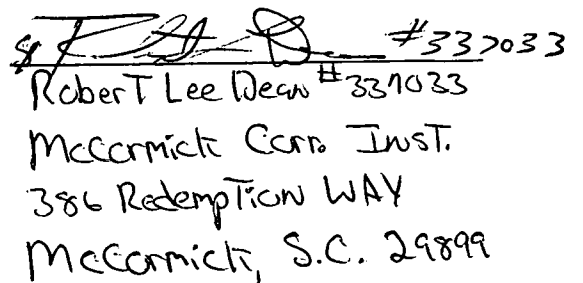 s/ #337033
Robert Lee Dean #337033
McCormick Corr. Inst.
386 Redemption WAY
McCormick, S.C. 29899